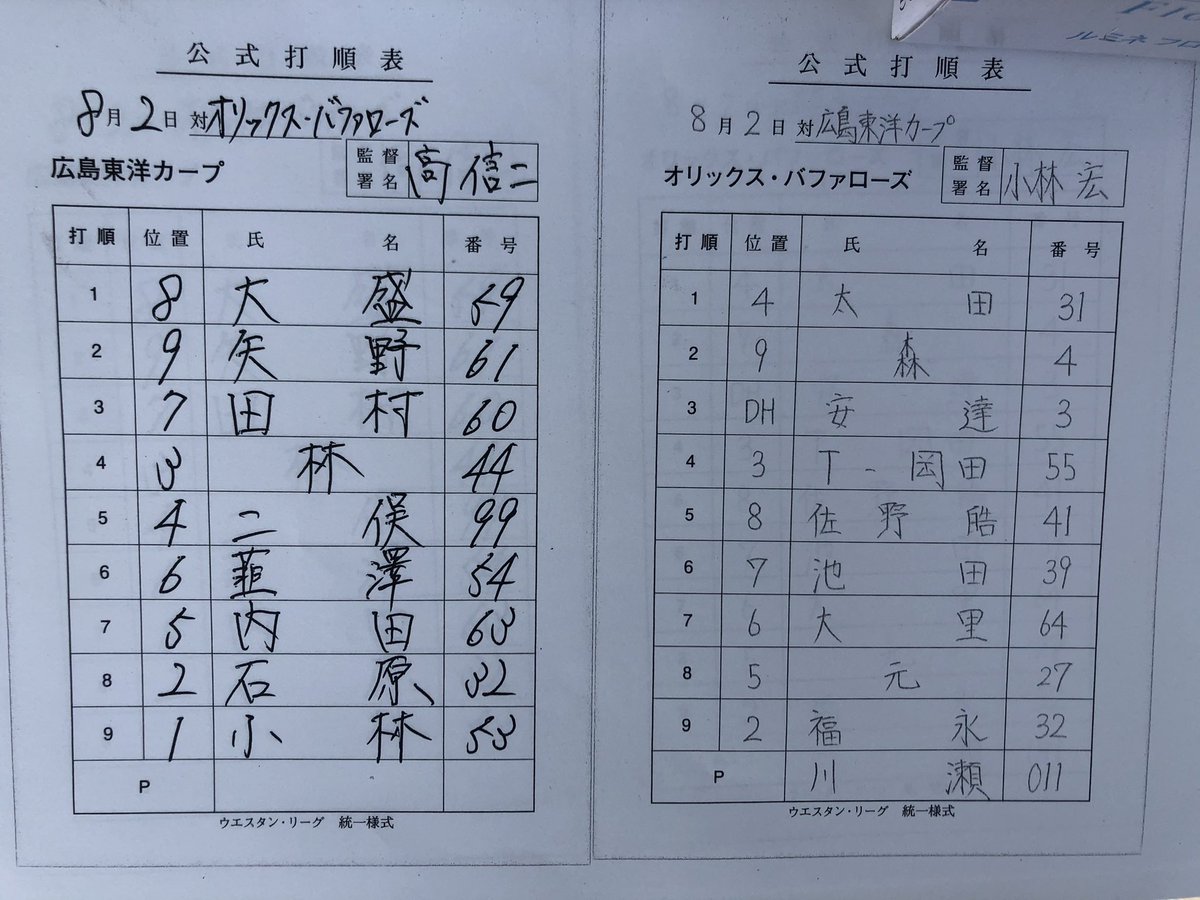 公式打順表
8月2日 対オリックス・バファローズ
広島東洋カープ 監督署名 高 信二
打順 位置 氏名 番号
1 8 大盛 59
2 9 矢野 61
3 7 田村 60
4 3 林 44
5 4 二俣 99
6 6 韮澤 54
7 5 内田 63
8 2 石原 32
9 1 小林 53
P
ウエスタン・リーグ 統一様式
公式打順表
8月2日 対広島東洋カープ
オリックス・バファローズ 監督署名 小林 宏
打順 位置 氏名 番号
1 4 太田 31
2 9 森 4
3 DH 安達 3
4 3 T-岡田 55
5 8 佐野皓 41
6 7 池田 39
7 6 大里 64
8 5 元 27
9 2 福永 32
P 川瀬 011
ウエスタン・リーグ 統一様式
ルミネ